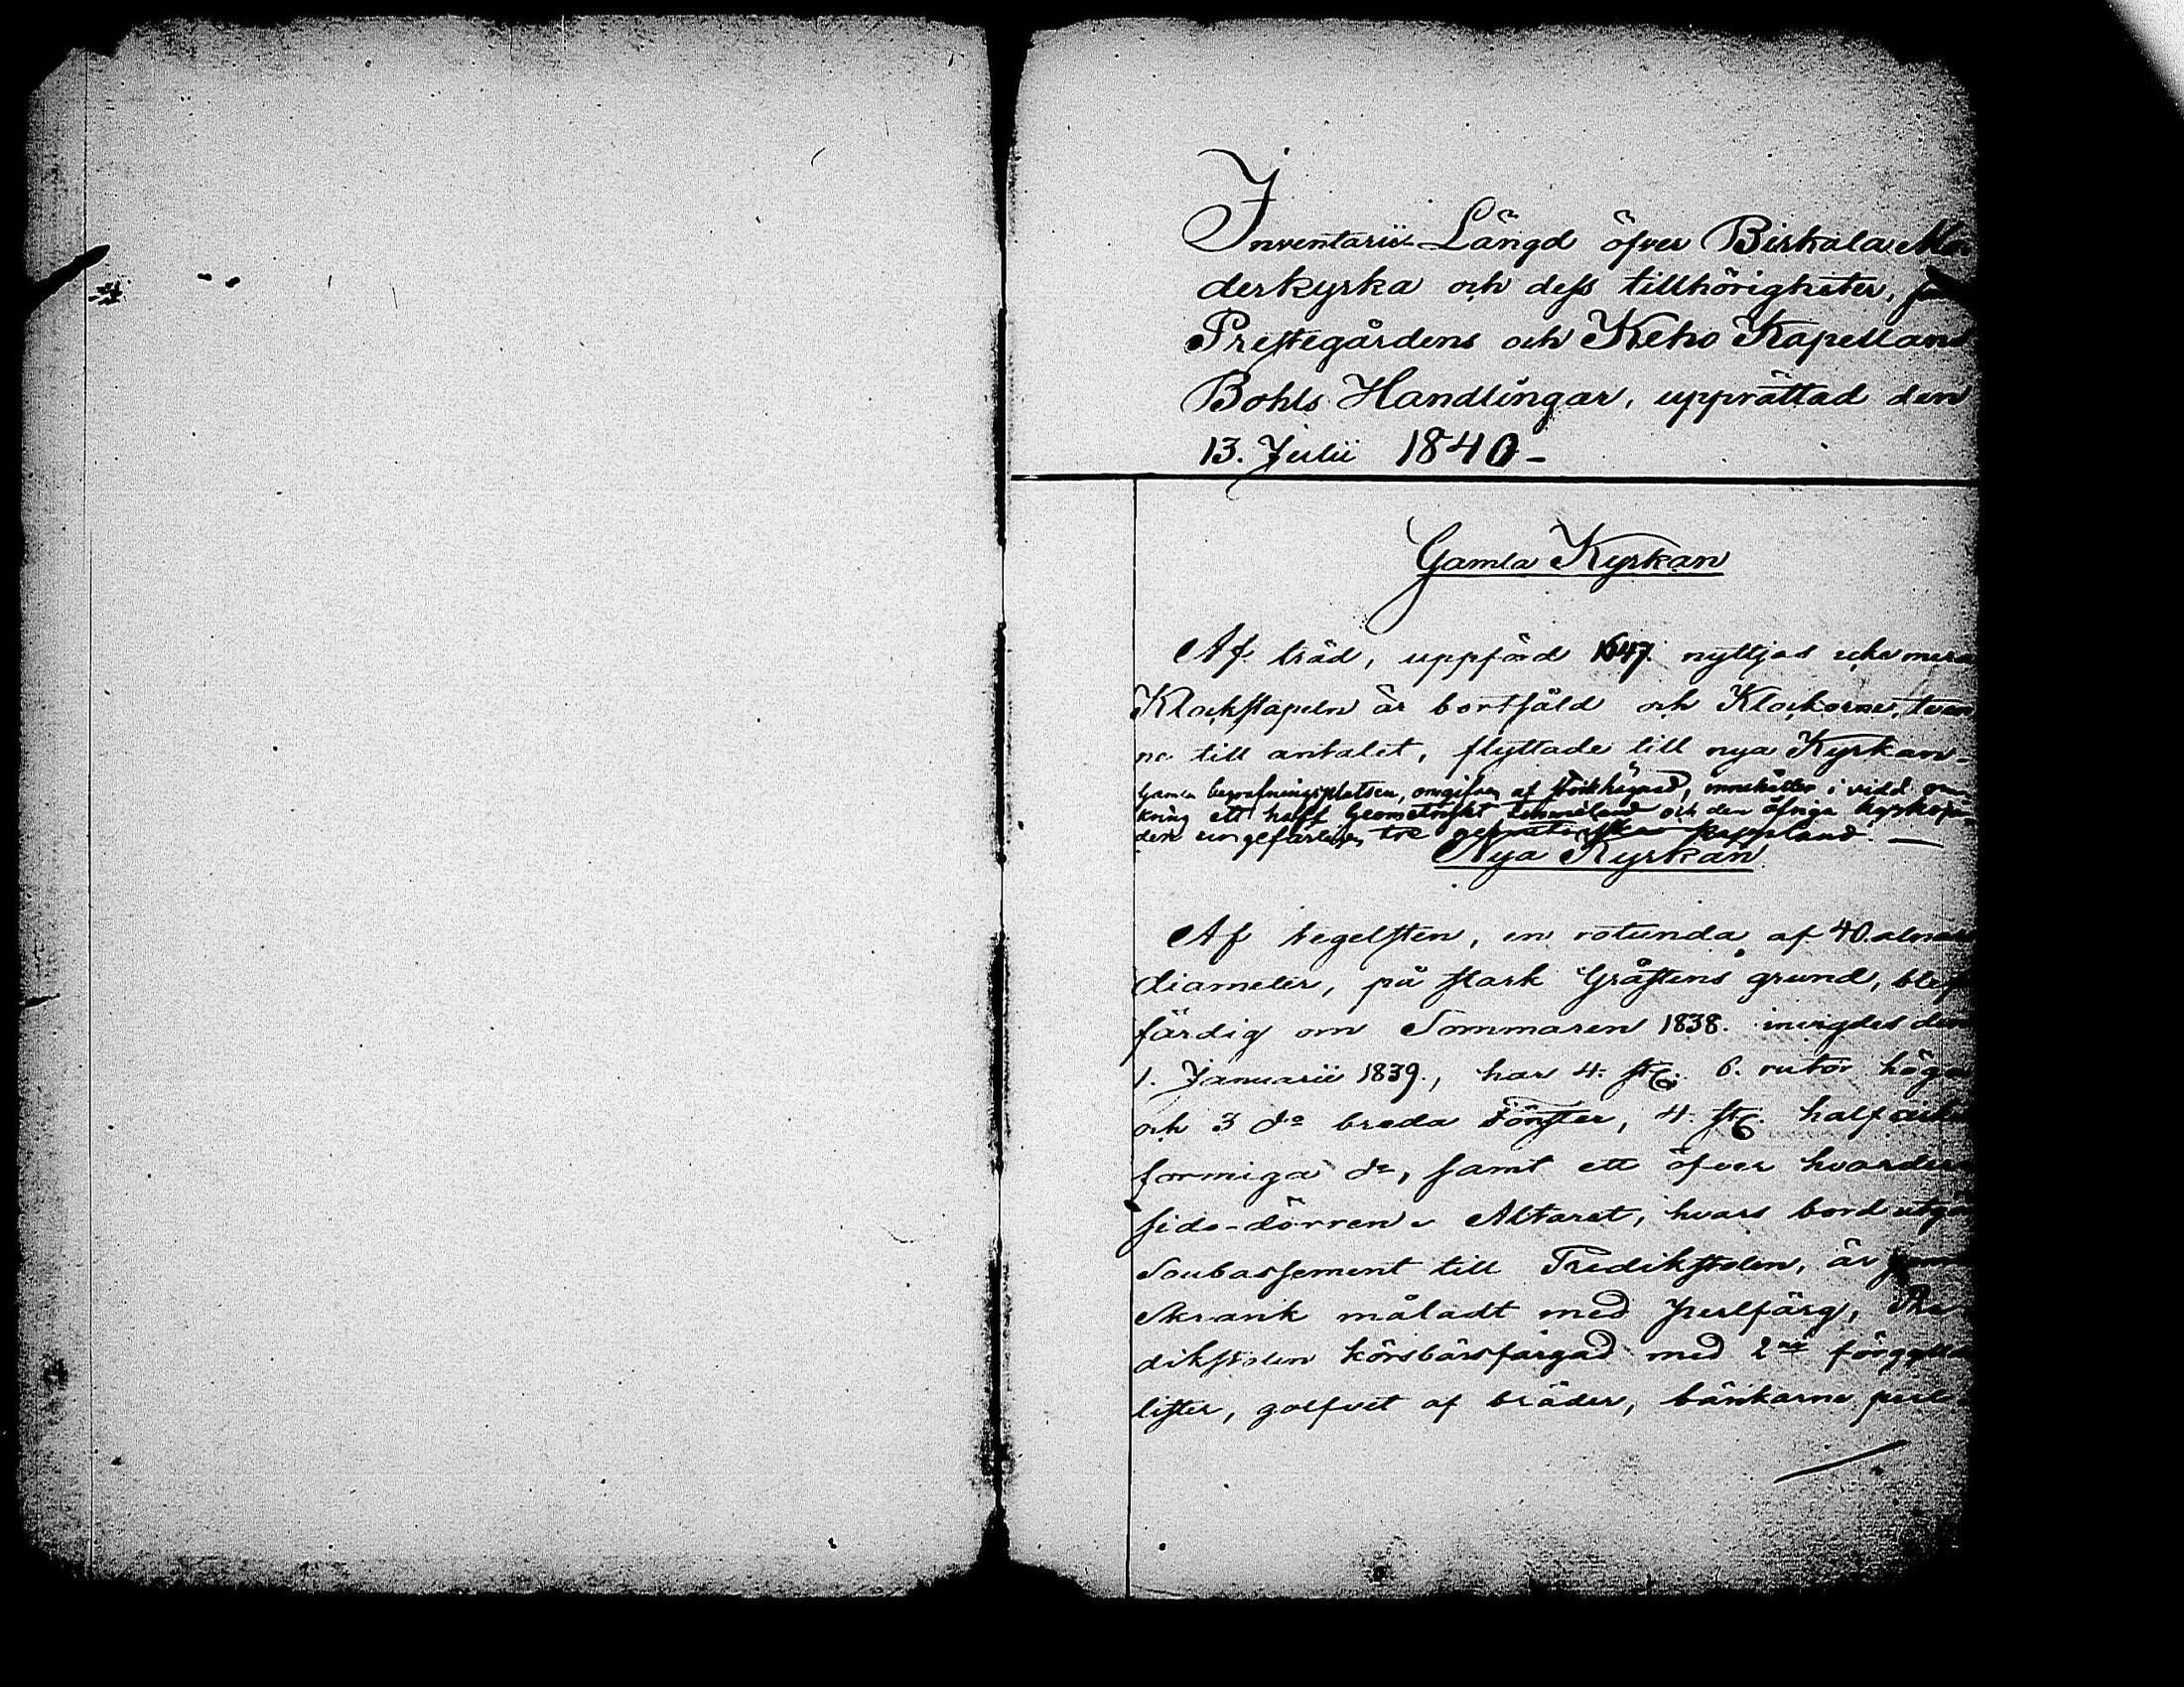 Inventarii Längd öfver Birkala Mo
derkyrka och dess tillhörigheter,
Prestegårdens och Keho Kapellans
Bohls Handlingar, upprättad den
13. Julii 1840 -
Gamla Kyrkan
Af träd, uppförd 1647. nyttjas icke mera
Klockstapeln är bortfäld och Klockorne, tven
ne till antalet, flyttade till nya Kyrkan -
Gamla begrafningsplatsen, omgifven af hägnad, innehåller i vidd om
kring ett halft Geometriskt tunneland och den öfriga
den ungefärligen tre geometriska kappland. -
Nya Kyrkan
Af tegelsten, en rotunda af 40. alnars
diameter, på stark Gråstens grund, blef
färdig om Sommaren 1838. invigdes den
1. Januarii 1839., har 4. st. 6. rutor höga
och 3 do breda Fönster, 4. st. half
formiga do, samt ett öfver hvardera
sido-dörren. Altaret, hvars bord utgör
Soubassement till Predikstolen, är
Skrank måladt med perlfärg, Pre
dikstolen körsbärsfärgad med 2ne förgyllda
lister, golfvet af bräder, bänkarne perl-